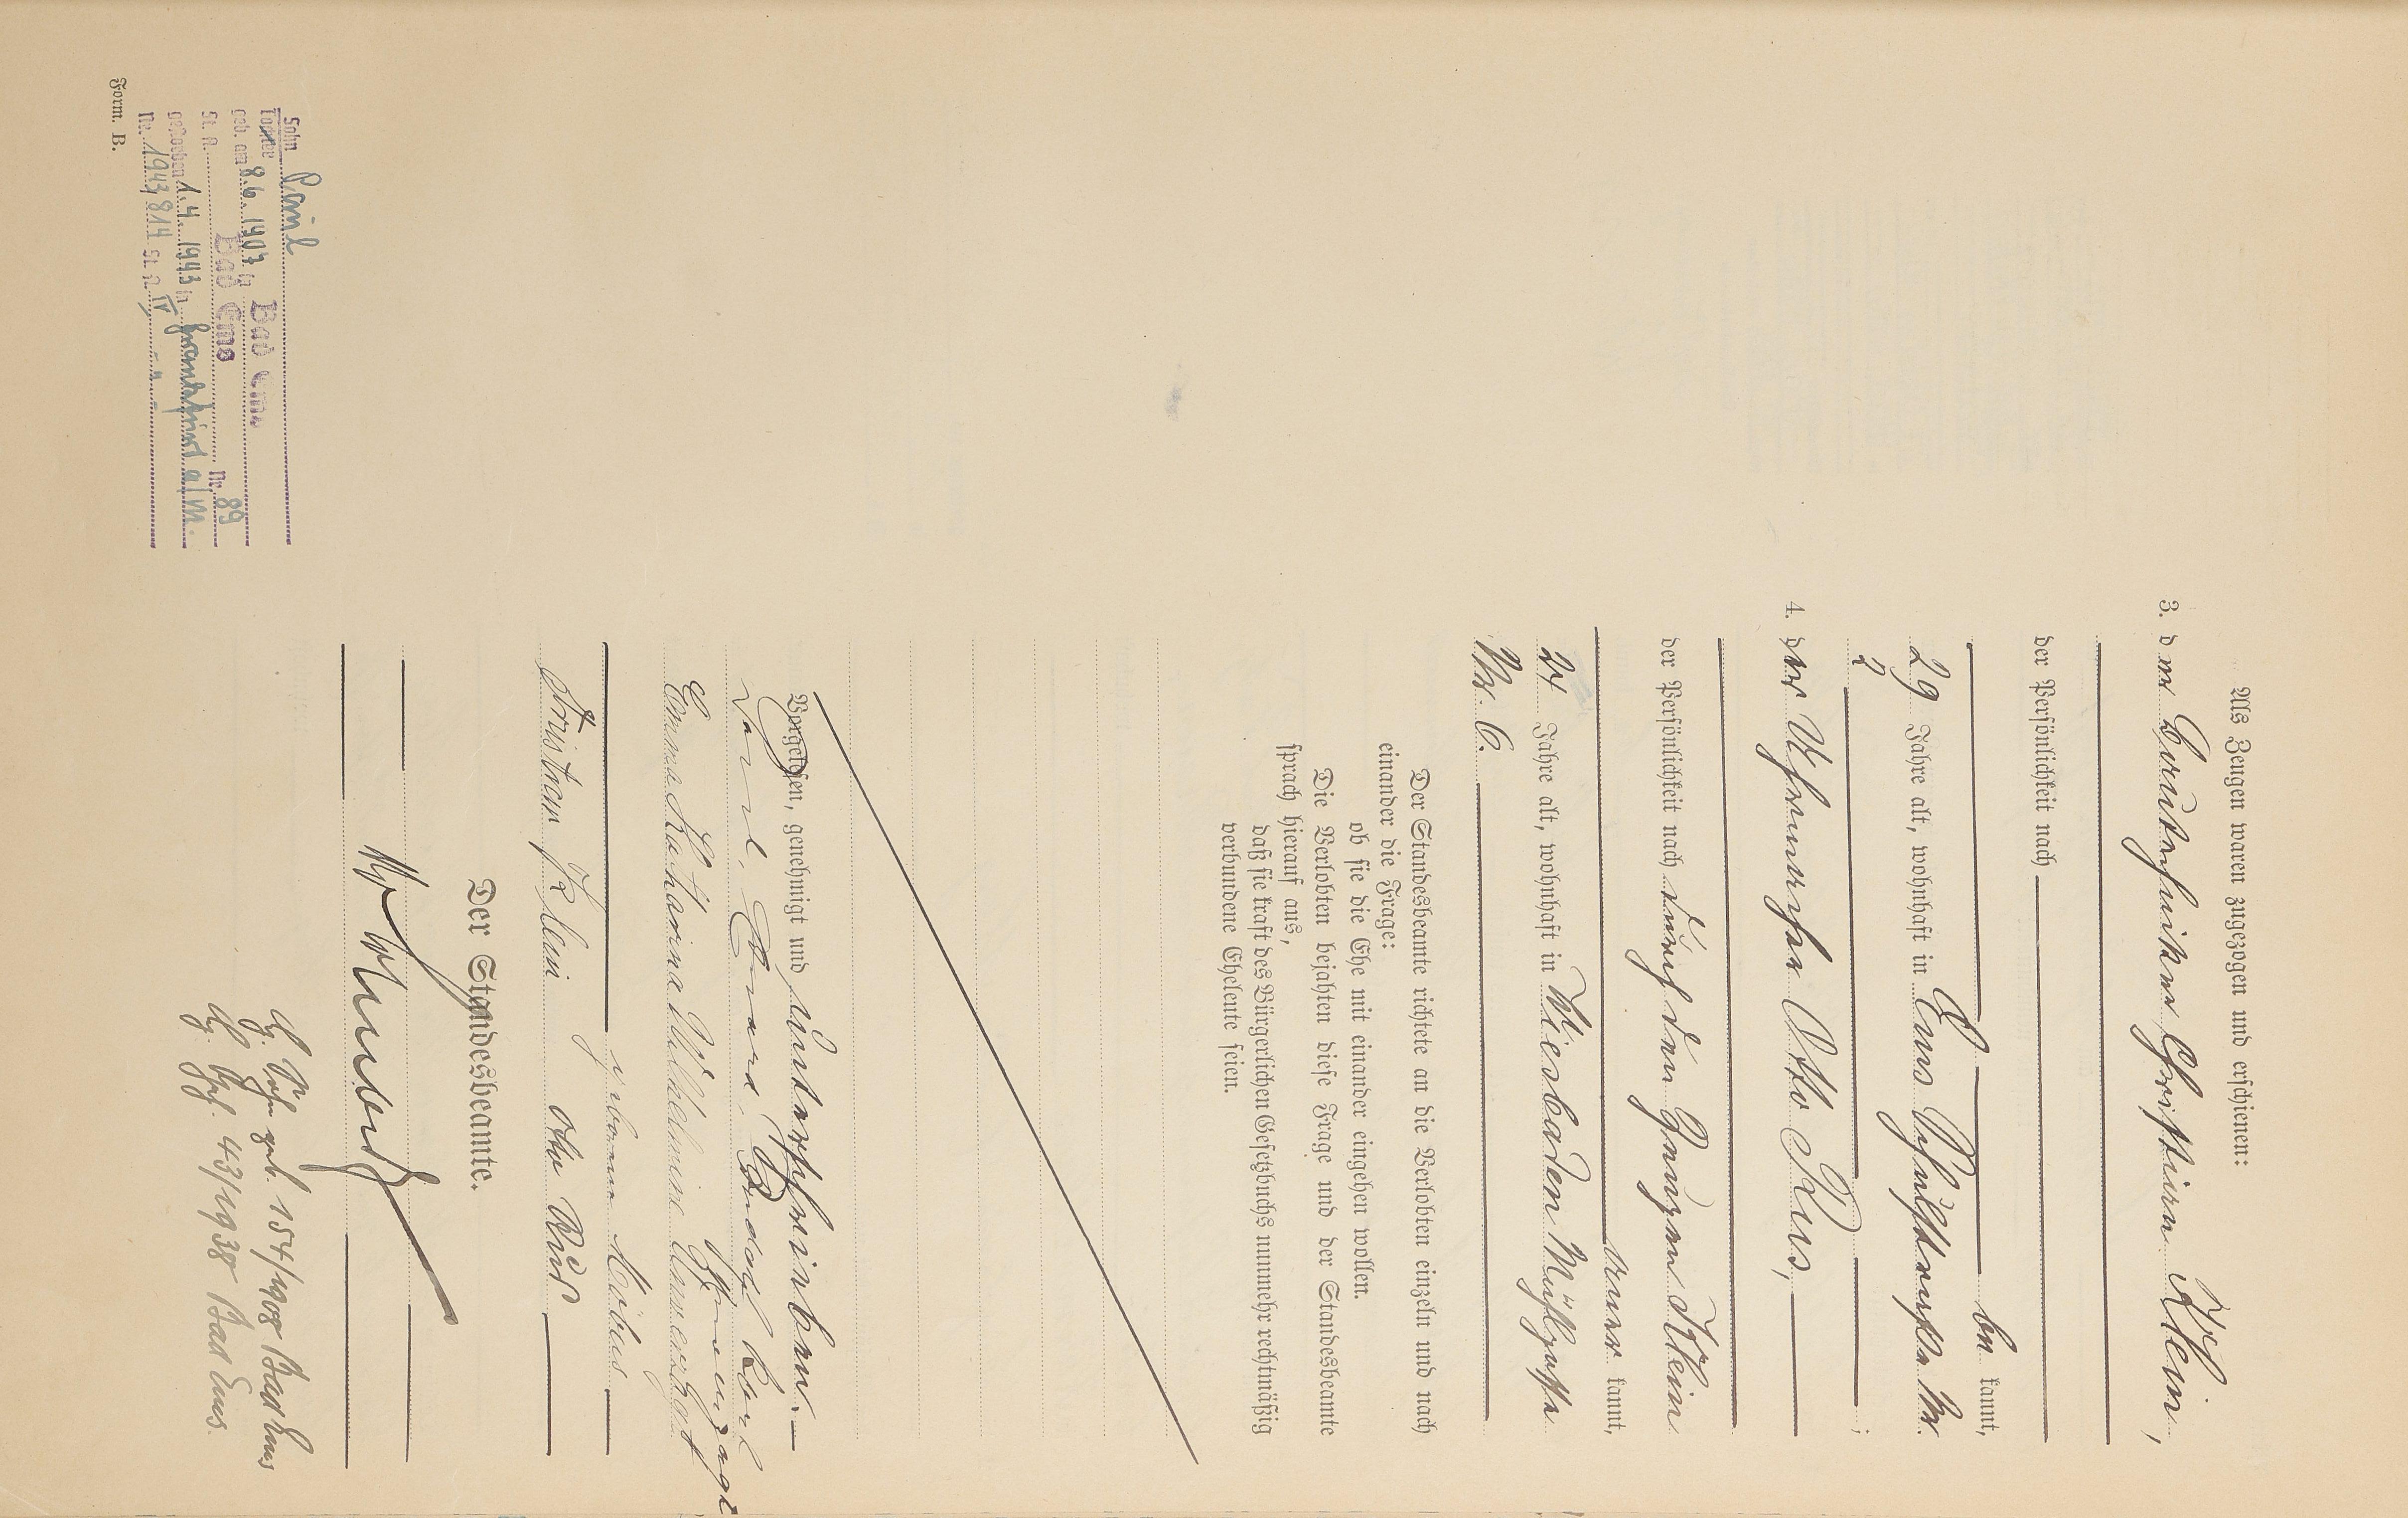 Als Zeugen waren zugezogen und erschienen:
3. der Bautechniker Christian Klein,
der Persönlichkeit nach
be kannt,
29 Jahre alt, wohnhaft in Ems Schulstraße Nr.
2 ;
4. der Otto
der Persönlichkeit nach durch den Zeugen Klein
aner kannt,
24 Jahre alt, wohnhaft in Wiesbaden Mühlgasse
Nr. 6.
Der Standesbeamte richtete an die Verlobten einzeln und nach
einander die Frage:
ob sie die Ehe mit einander eingehen wollen.
Die Verlobten bejahten diese Frage und der Standesbeamte
sprach hierauf aus,
daß sie kraft des Bürgerlichen Gesetzbuchs nunmehr rechtmäßig
verbundene Eheleute seien.
Vorgelesen, genehmigt und unterschrieben.
Karl
Emma Katharina Wilhelmine
geborene Möbus
Christian Klein Otto
Der Standesbeamte.
geb. 154/1908 Bad Ems
43/1938 Bad Ems.
Sohn Paul
Tochter
geb. am 8.6.1907 in Bad Ems
St. A. Bad Ems Nr. 89
gestorben 1.4.1943 in Frankfurt a/M.
Nr. 1943/814 St. A. IV - " -
Form. B.